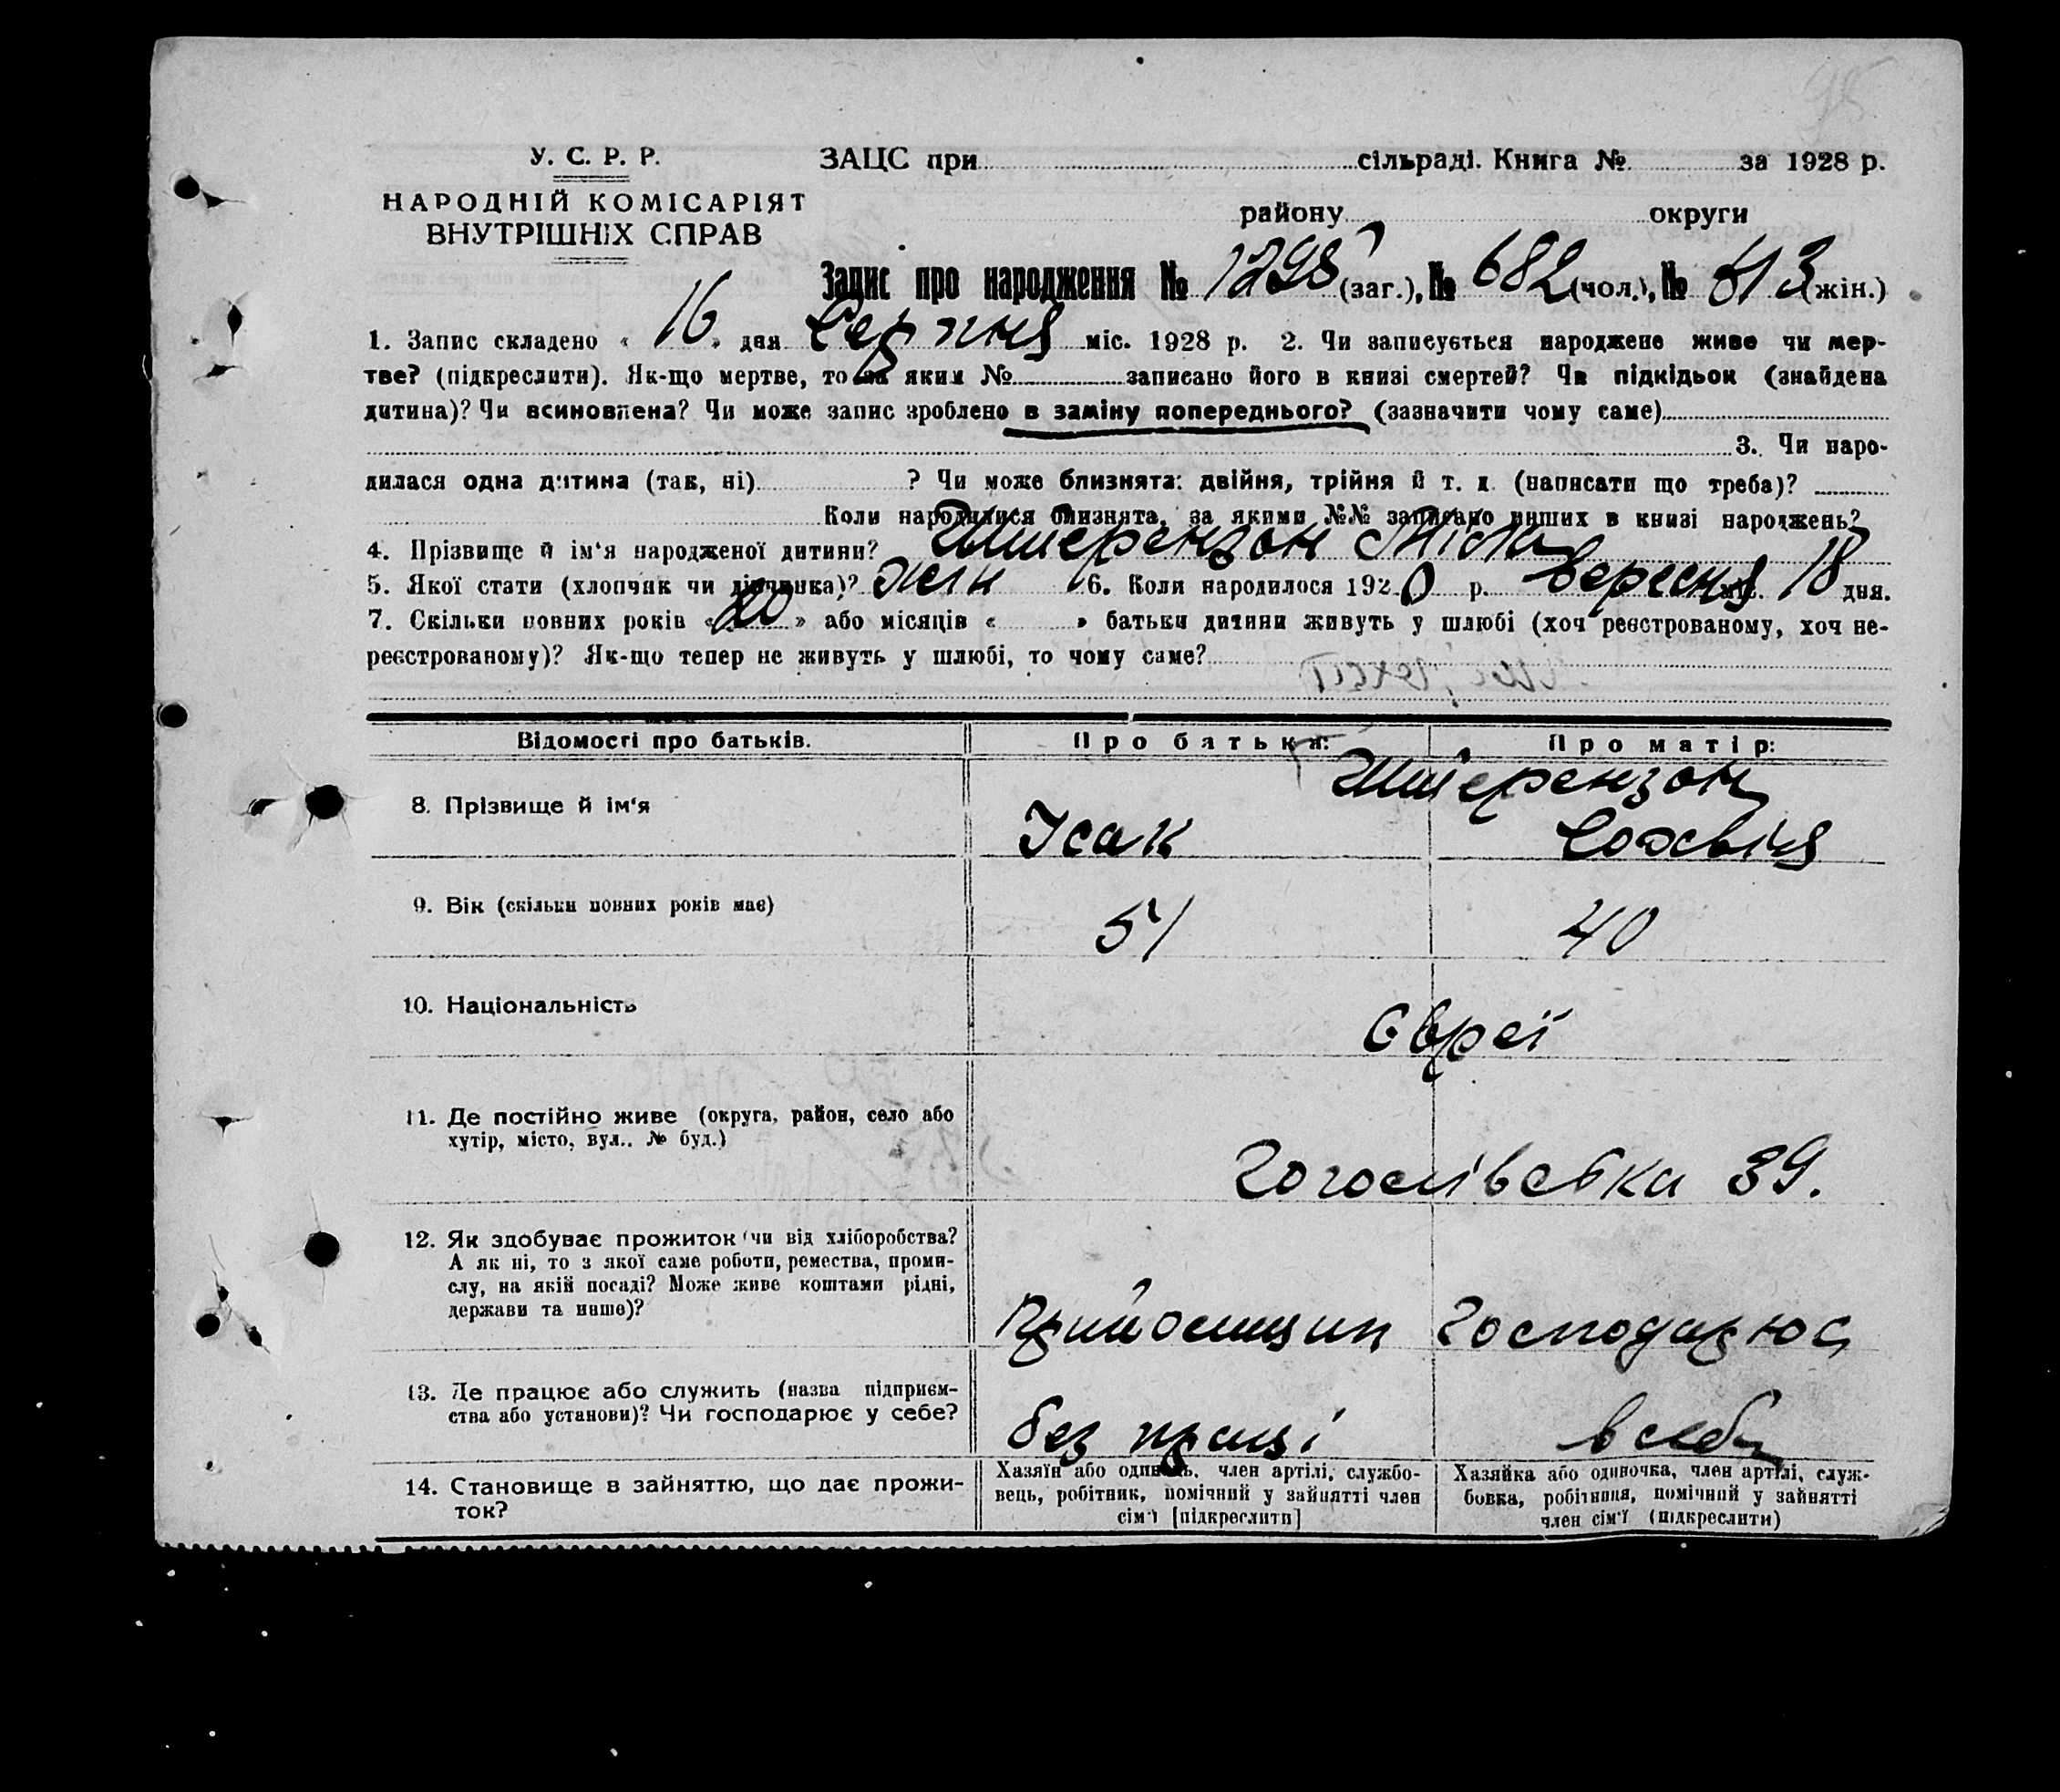 98
У. С. Р. Р.
НАРОДНІЙ КОМІСАРІЯТ
ВНУТРІШНІХ СПРАВ
ЗАЦС при сільраді. Книга № за 1928 р.
району округи
Запис про народження № 1298 (заг.), № 682 (чол.), № 613 (жін.)
1. Запис складено « 16 » дня Серпня міс. 1928 р. 2. Чи записується народжене живе чи мер-
тве? (підкреслити). Як-що мертве, то за яким № записано його в книзі смертей? Чи підкідьок (знайдена
дитина)? Чи всиновлена? Чи може запис зроблено в заміну попереднього? (зазначити чому саме)
3. Чи наро-
дилася одна дитина (так, ні) ? Чи може близнята: двійня, трійня й т. д. (написати що треба)?
Коли народилися близнята, за якими №№ записано инших в книзі народжень?
4. Прізвище й ім'я народженої дитини? Штерензон
5. Якої стати (хлопчик чи дівчинка)? жін 6. Коли народилося 1920 р. вересня міс. 18 дня.
7. Скільки повних років « 20 » або місяців « » батьки дитини живуть у шлюбі (хоч реєстрованому, хоч не-
реєстрованому)? Як-що тепер не живуть у шлюбі, то чому саме?
Відомості про батьків. Про батька: Про матір:
Штерензон
8. Прізвище й ім'я Ісак
9. Вік (скільки повних років має) 51 40
10. Національність Євреї
11. Де постійно живе (округа, район, село або
хутір, місто, вул., № буд.)
Гоголівська 39.
12. Як здобуває прожиток (чи від хліборобства?
А як ні, то з якої саме роботи, ремества, проми-
слу, на якій посаді? Може живе коштами рідні,
держави та инше)?
Господарює
13. Де працює або служить (назва підприєм-
ства або установи)? Чи господарює у себе?
без праці в себе
14. Становище в зайняттю, що дає прожи-
ток?
Хазяїн або одинець, член артілі, службо-
вець, робітник, помічний у зайнятті член
сім'ї [підкреслити]
Хазяйка або одиночка, член артілі, служ-
бовка, робітниця, помічний у зайнятті
член сім'ї (підкреслити)